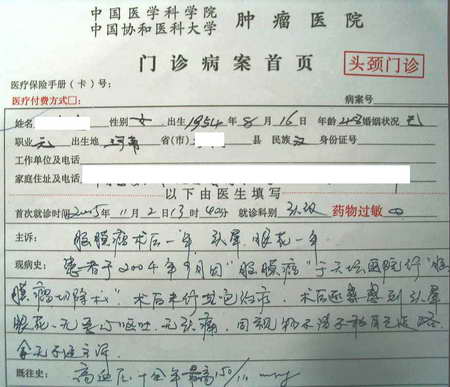 中国医学科学院
中国协和医科大学 肿瘤医院
门诊病案首页 头颈门诊
医疗保险手册(卡)号:
医疗付费方式□: 病案号
姓名 性别 女 出生 1954 年 8 月 16 日 年龄 48 婚姻状况 已
职业 无 出生地 河南 省(市) 县 民族 汉 身份证号
工作单位及电话
家庭住址及电话
以下由医生填写
首次就诊时间 2005年 11月 2日 13时 40分 就诊科别 头颈 药物过敏
主诉: 脑膜瘤术后一年 头晕、眼花一年
现病史: 患者于2004年9月因"脑膜瘤"于天坛医院行"脑
膜瘤切除术". 术后未行其它治疗. 术后逐渐感到头晕
眼花. 无恶心呕吐. 无头痛. 视物不清
余无不适主诉
既往史: 高血压十余年 最高150/110 mmHg